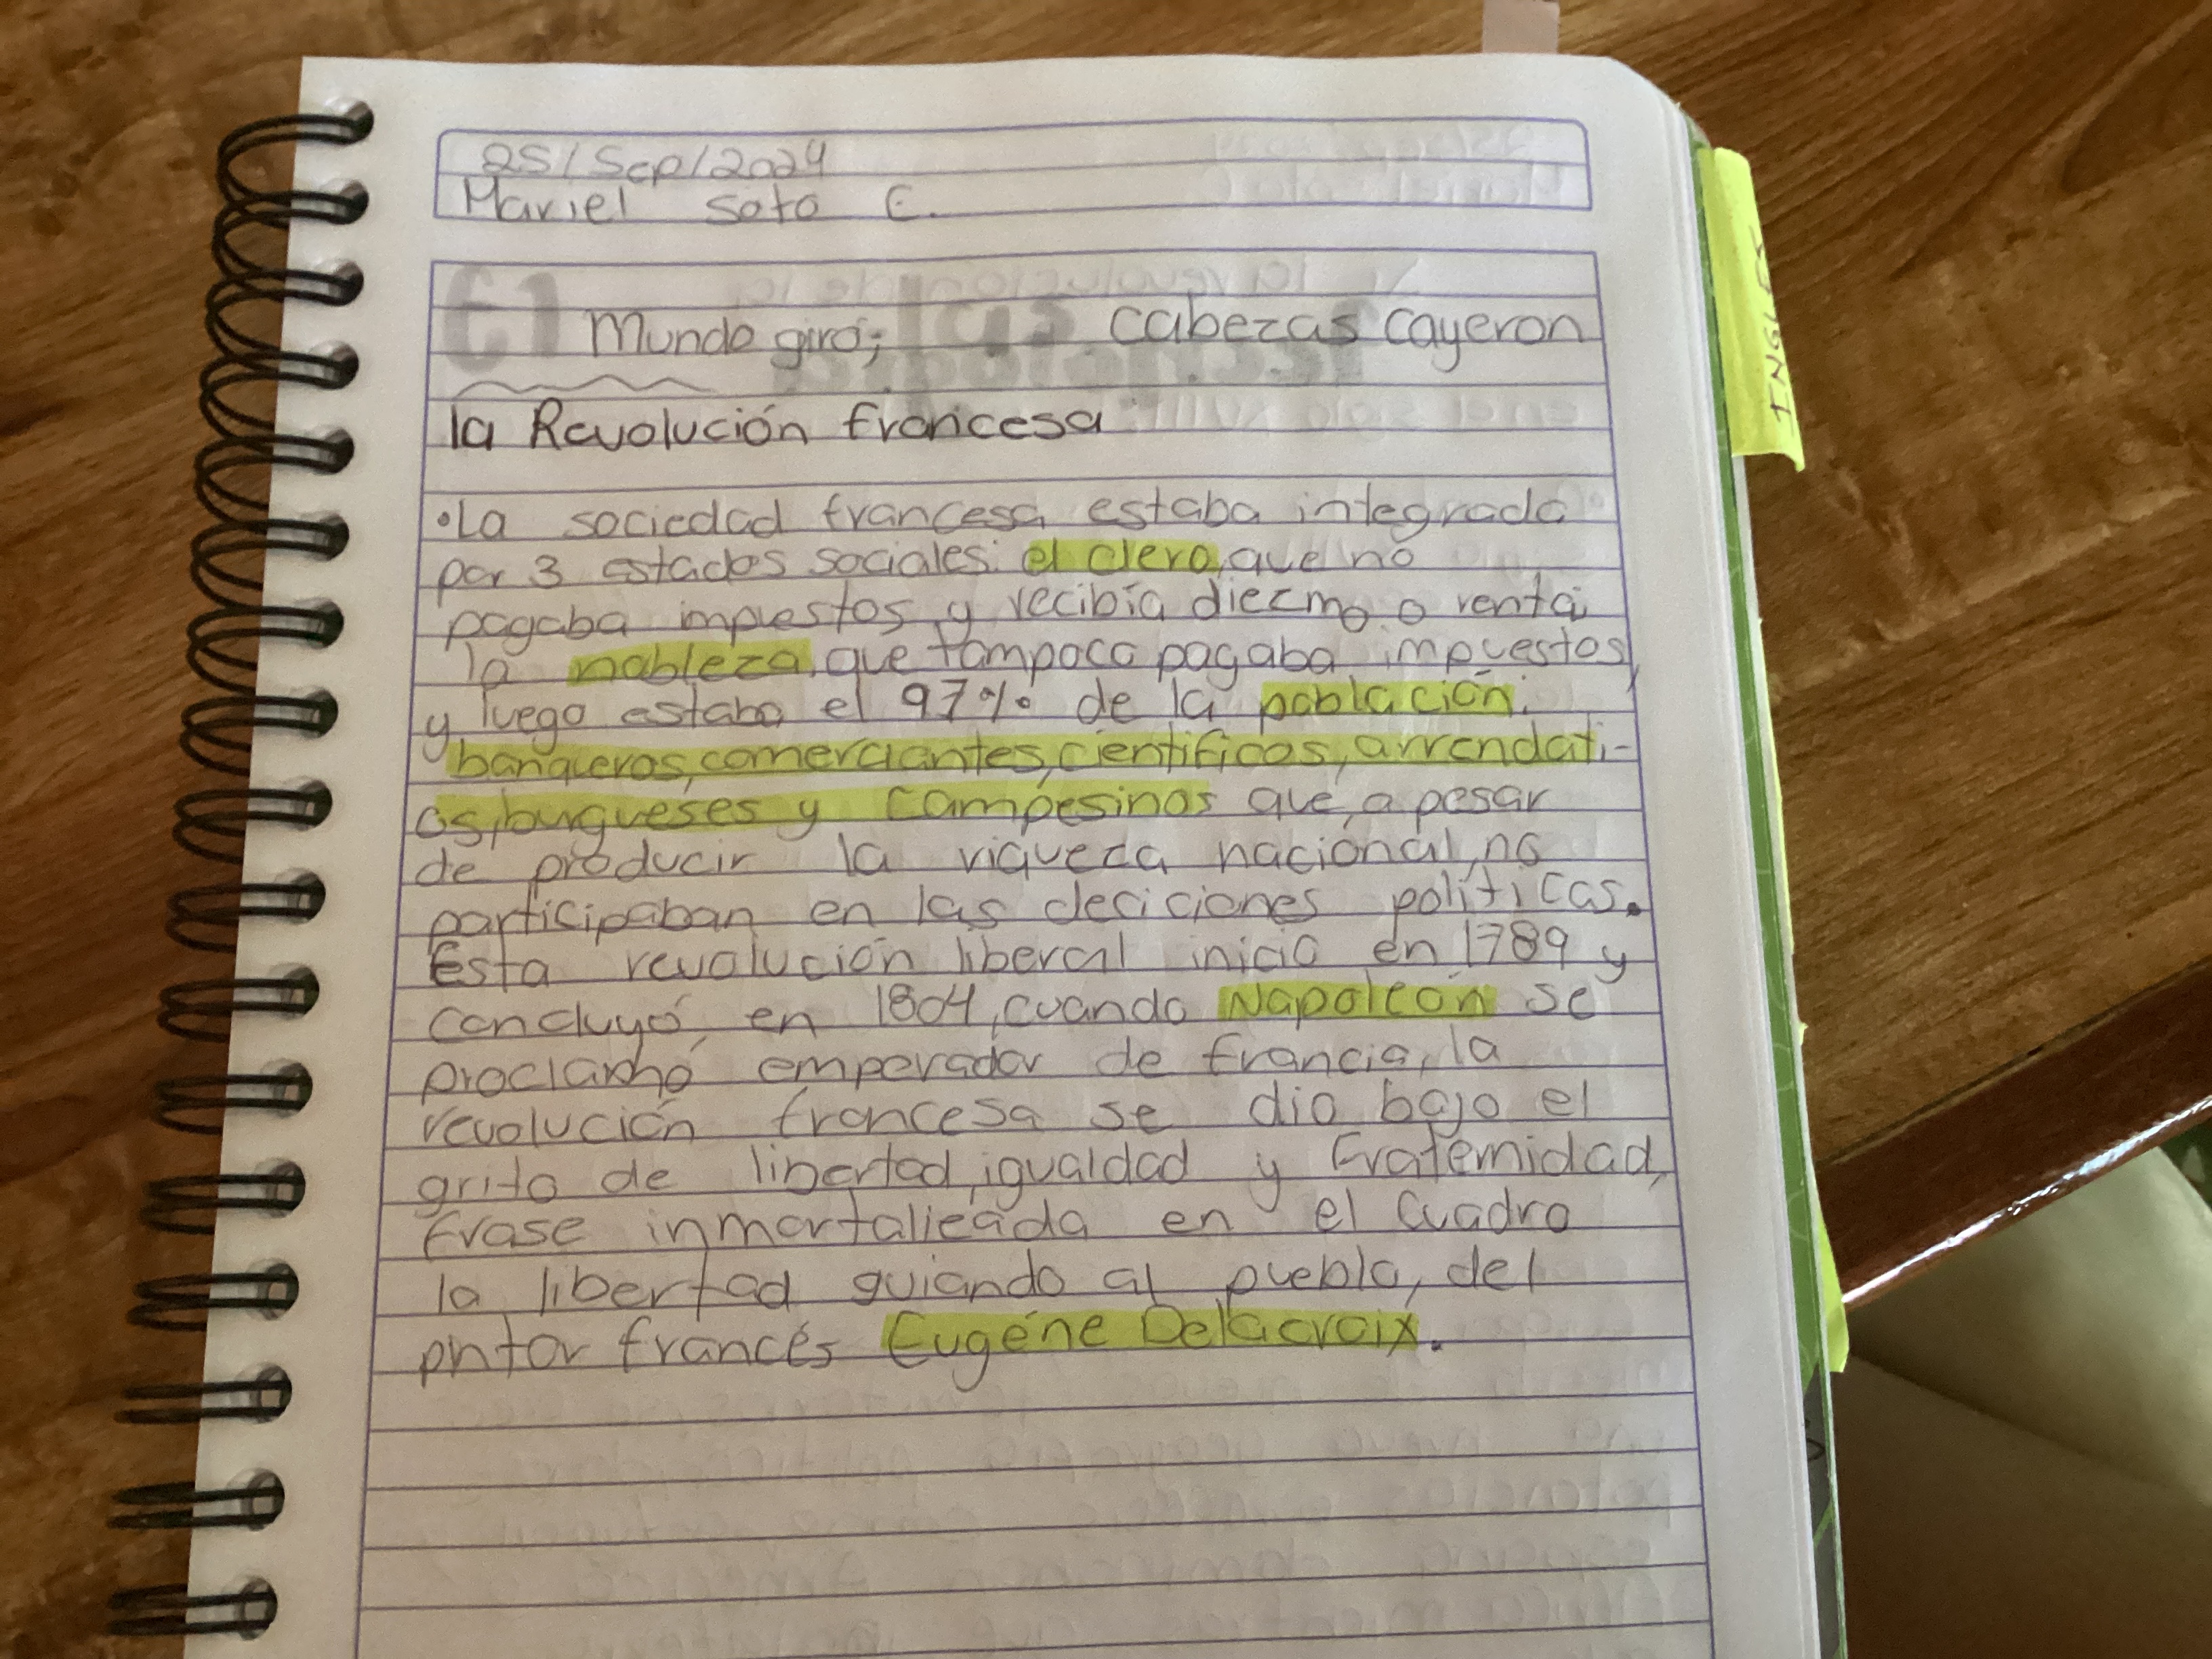 25/Sep/2024
Mariel Soto E.
Mundo giró; cabezas cayeron
la Revolución francesa
•La sociedad francesa estaba integrada
por 3 estados sociales: el clero, que no
pagaba impuestos y recibía diezmo o renta;
la nobleza, que tampoco pagaba impuestos,
y luego estaba el 97% de la población:
banqueros, comerciantes, científicos, arrendati-
os, burgueses y campesinos que, a pesar
de producir la riqueza nacional, no
participaban en las deciciones políticas.
Esta revolución liberal inició en 1789 y
concluyó en 1804, cuando Napoleón se
proclamó emperador de francia, la
revolución francesa se dio bajo el
grito de libertad, igualdad y Fraternidad,
frase inmortalizada en el cuadro
la libertad guiando al pueblo, del
pintor francés Eugéne Delacroix.
INGLES